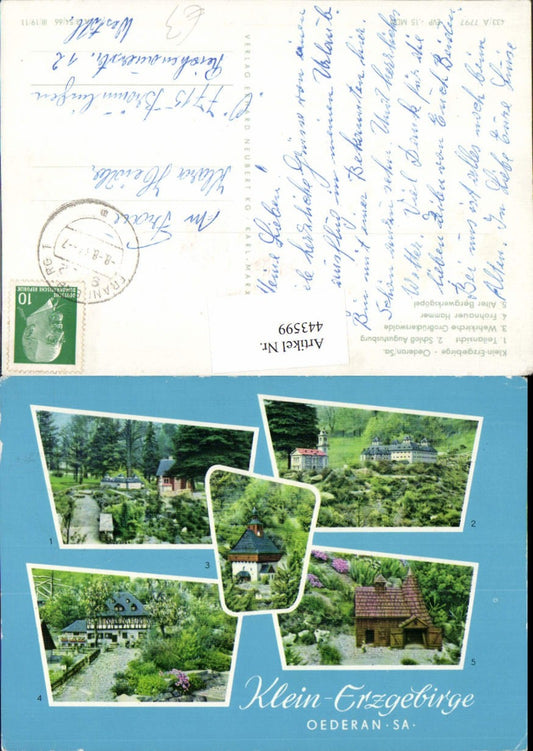 433/A 7797
EVP -.15 MDN
III 19/11
VERLAG ERHARD NEUBERT KG KARL-MARX-
Klein-Erzgebirge - Oederan/Sa.
1 Teilansicht 2. Schloß Augustusburg
3. Wehrkirche Großrückerswalde
4. Frohnauer Hammer
5. Alter Bergwerksgöpel
Meine Lieben!
die herzlichste Grüsse von einem
Ausflug in meinem Urlaub.
Bin mit einer Bekannten hier.
Schön anzusehn. Und herrliches
Wetter. Viel Dank für die
lieben Zeilen von Euch Beiden.
Bei uns ist alles noch beim
Alten. In Liebe Eure Luise
An Frau
Klara Heidler
7715 Bräunlingen
12
Westdtl.
DEUTSCHE
DEMOKRATISCHE REPUBLIK
10
Artikel Nr.
443599
1
2
3
4
5
Klein-Erzgebirge
OEDERAN·SA·